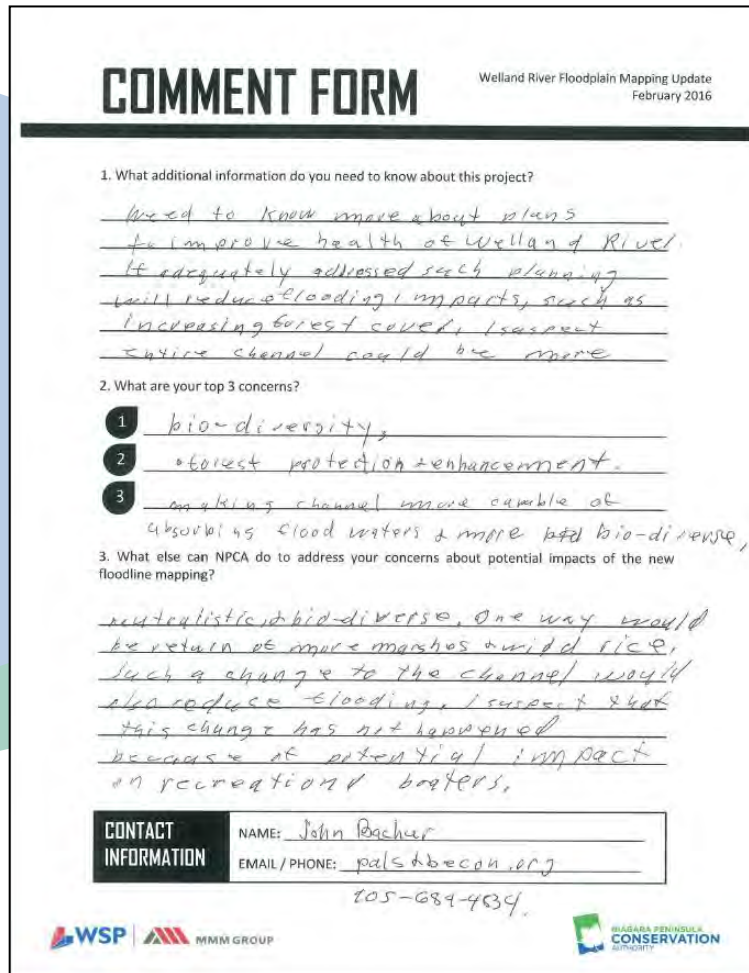 COMMENT FORM
Welland River Floodplain Mapping Update
February 2016
1. What additional information do you need to know about this project?
Need to know more about plans
to improve health of Welland River.
If adequately addressed such planning
will reduce flooding impacts, such as
increasing forest cover, I suspect
entire channel could be more
2. What are your top 3 concerns?
1 bio-diversity,
2 forest protection & enhancement.
3 making channel more capable of
absorbing flood waters & more bio-diverse,
3. What else can NPCA do to address your concerns about potential impacts of the new
floodline mapping?
& bio-diverse, One way would
be return of more marshes & wild rice,
such a change to the channel would
also reduce flooding, I suspect that
this change has not happened
because of potential impact
on recreational boaters.
CONTACT
INFORMATION
NAME: John Bacher
EMAIL / PHONE:
WSP
MMM GROUP
NIAGARA PENINSULA
CONSERVATION
AUTHORITY